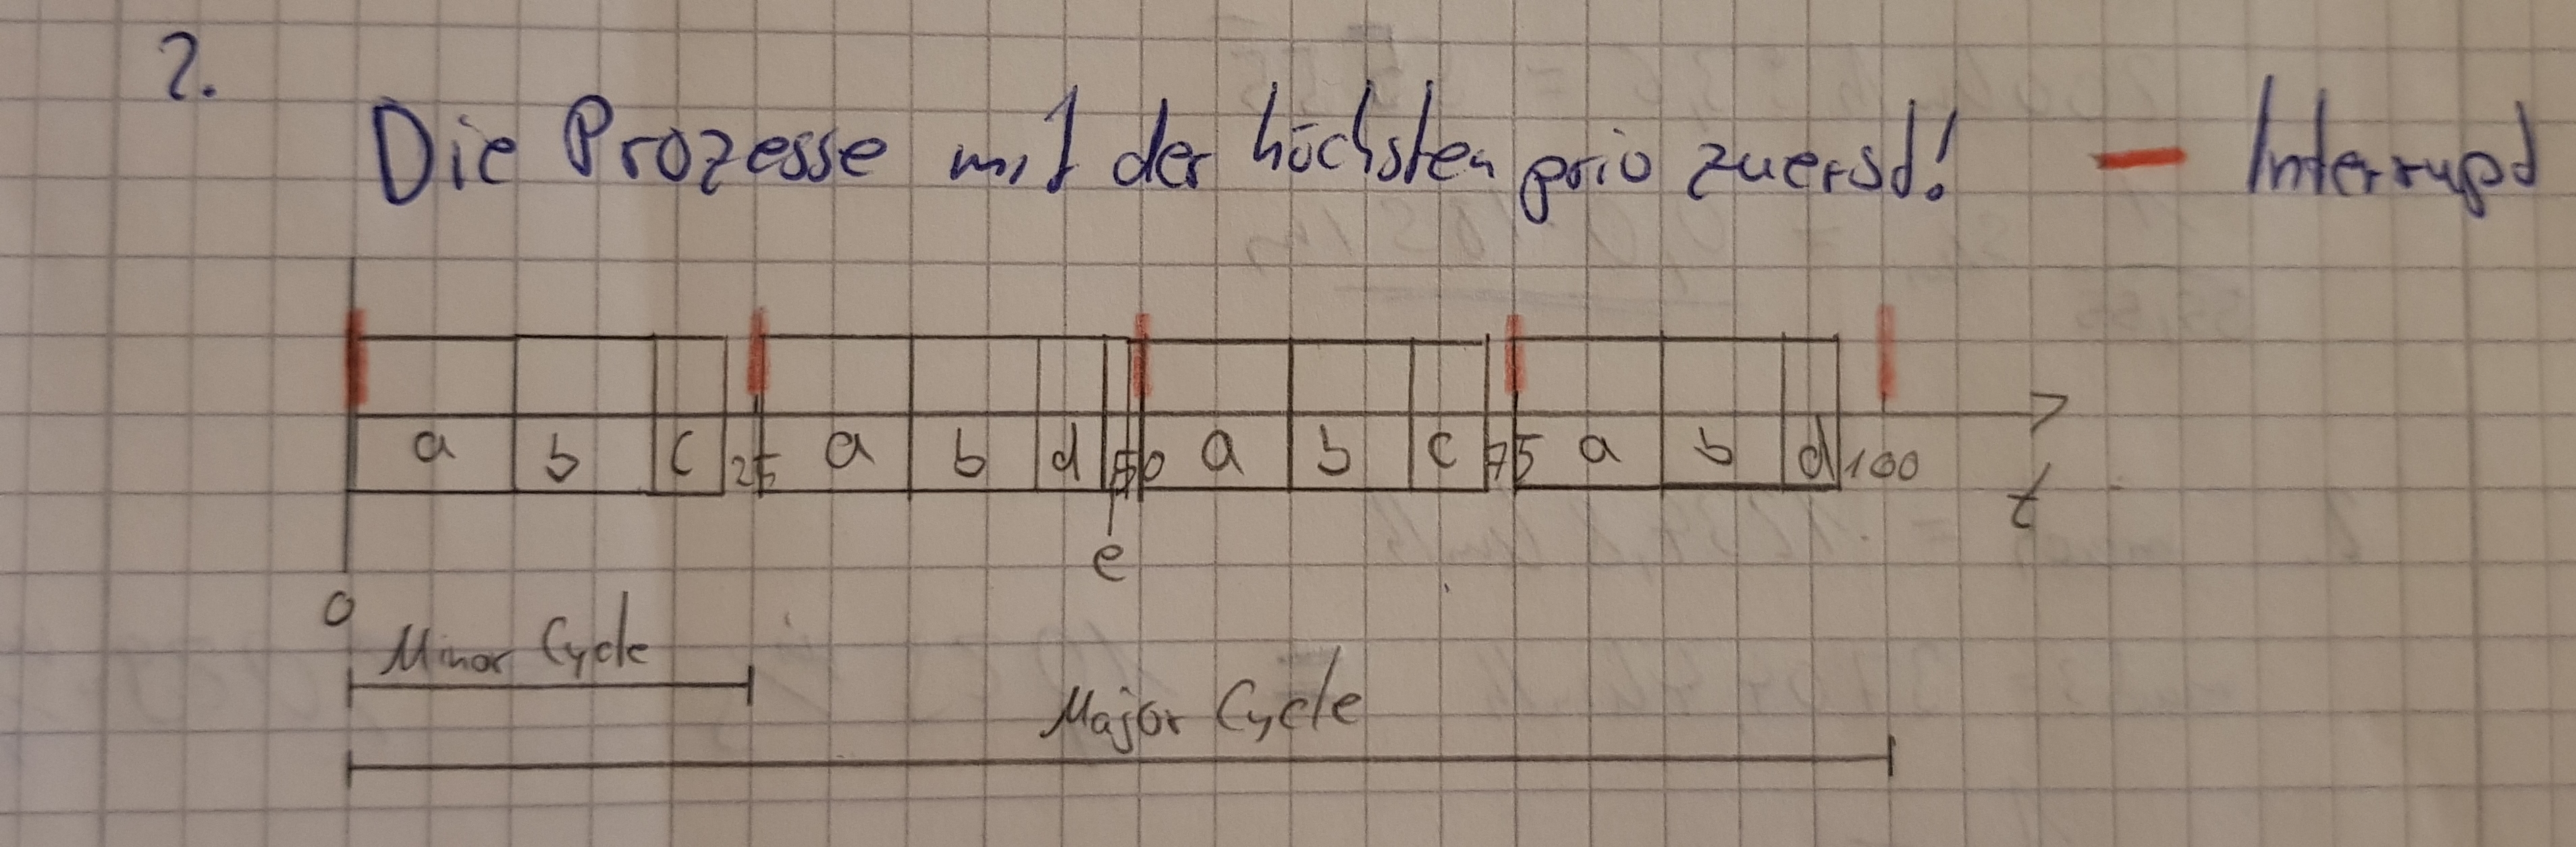 2.
Die Prozesse mit der höchsten prio zuerst! — Interrupt
a b c 25 a b d 50 a b c 75 a b d 100
t
e
0
Minor Cycle
Major Cycle